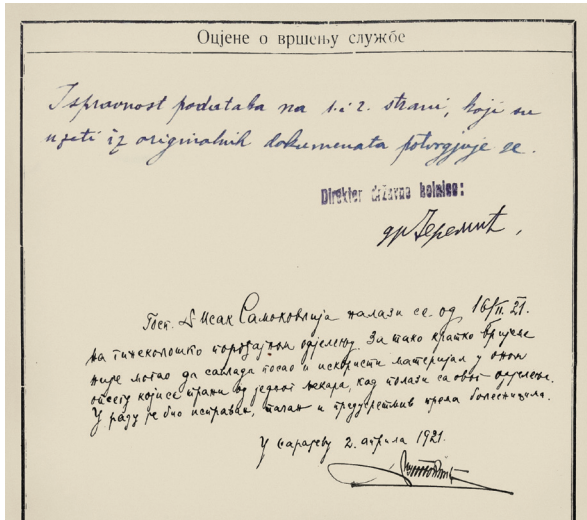 Оцјене о вршењу службе
Ispravnost podataka na 1. i 2. strani, koji su
uzeti iz originalnih dokumenata potvrgjuje se.
Direktor državne bolnice:
др Јеремић,
Госп. Dr Исак Самоковлија налази се од 16/II. 21.
на гинеколошко порођајном одјелењу. За тако кратко вријеме
није могао да савлада посао и искористи материјал у оном
опсегу који се тражи од једног лекара, кад полази са овог одјелења.
У раду је био исправан, тачан и предусретљив према болесницима.
У Сарајеву 2. априла 1921.